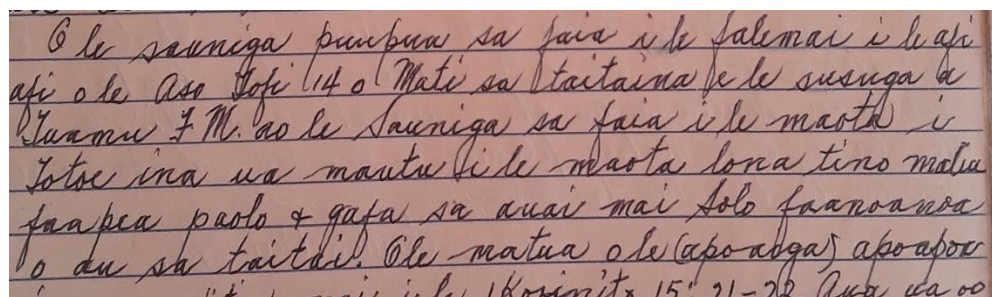 O le sauniga puupuu sa faia i le falemai i le afi
afi o le Aso Tofi 14 o Mati sa taitaina e le susuga a
Tuamu F M. ao le Sauniga sa faia i le maota i
Totoe ina ua mautu i le maota lona tino maliu
faapea paolo & gafa sa auai mai Solo faanoanoa
o au sa taitai. O le matua o le (apoaoga) apoapou
mai i le 1 Korinito 15: 21-22 Aua ua oo